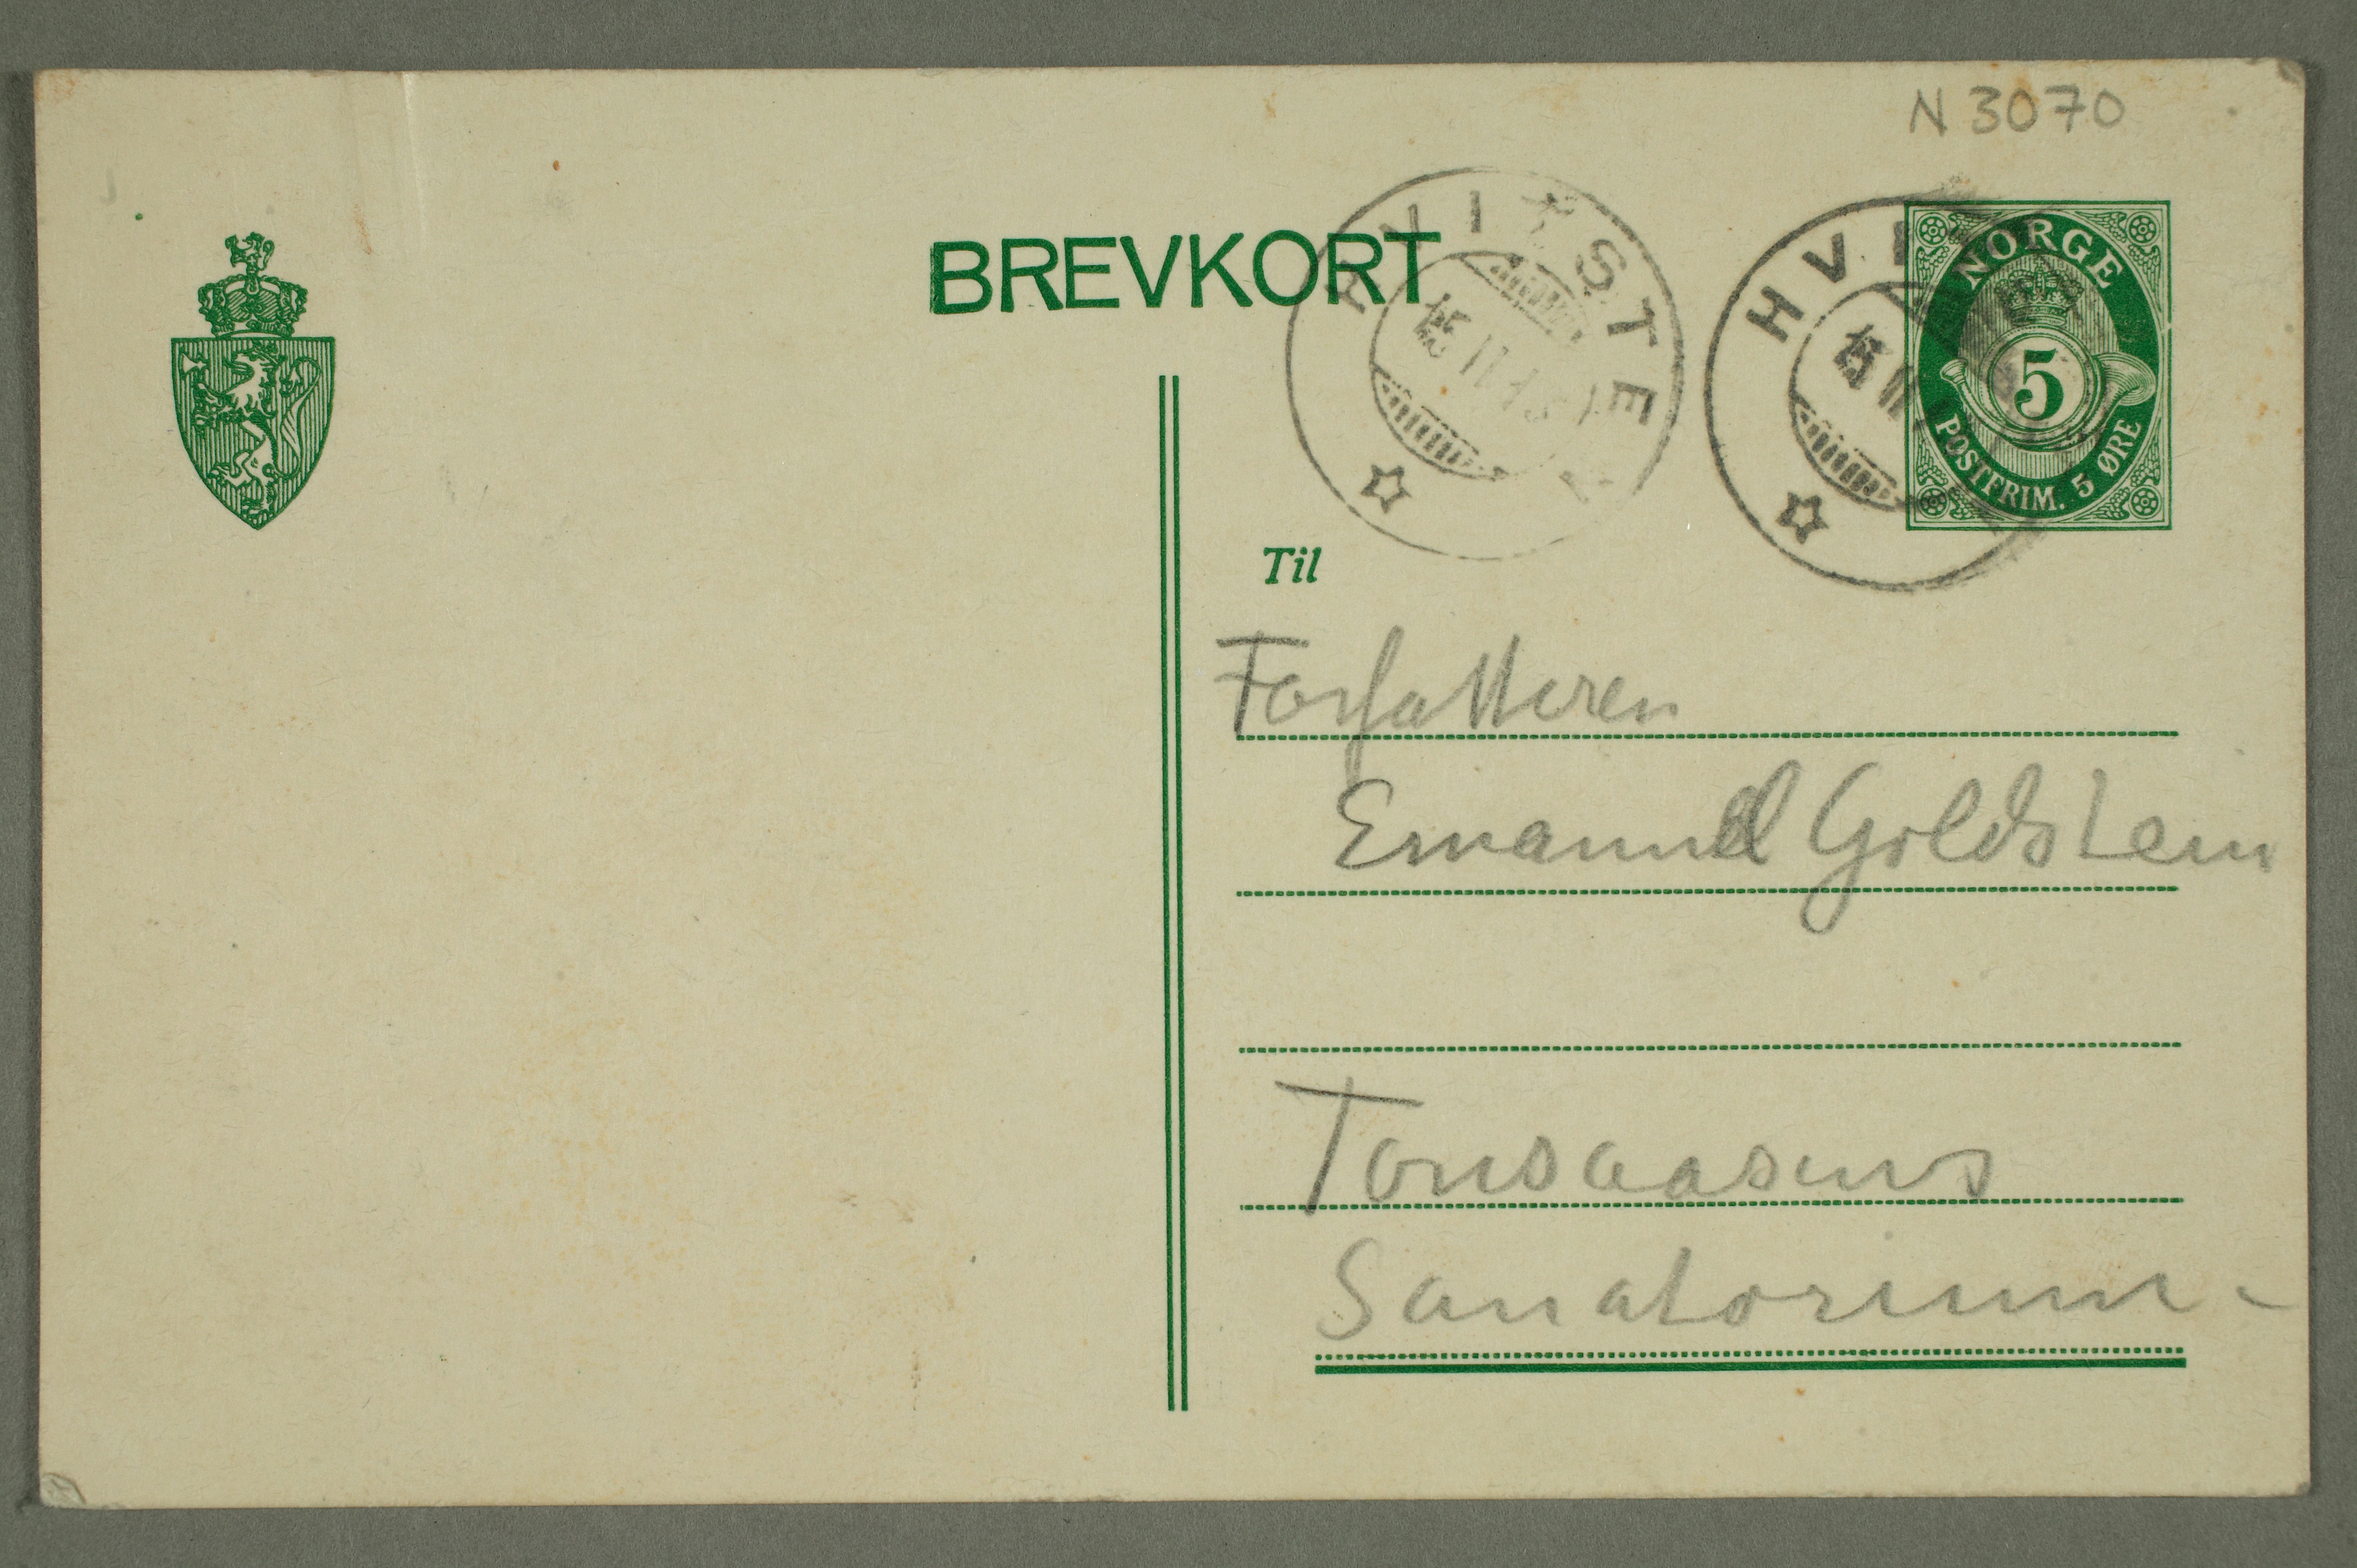 N 3070
BREVKORT
HVITSTEN
HVI
NORGE
5
POSTFRIM. 5 ØRE
Til
Forfatteren
Emanuel Goldstein
Tonsaasens
Sanatorium -